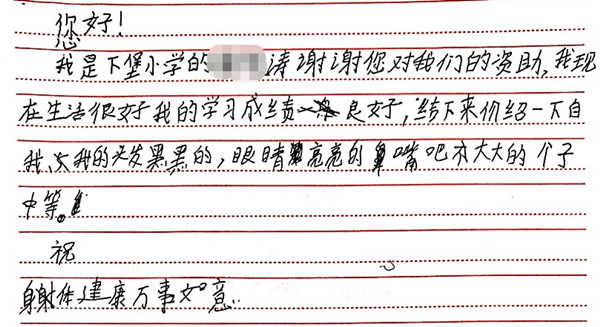 您好!
我是下堡小学的 涛谢谢您对我们的资助,我现
在生活很好我的学习成绩良好,结下来价绍一下自
我,我的头发黑黑的,眼睛亮亮的鼻嘴吧不大大的个子
中等。
祝
身射体建康万事如意.